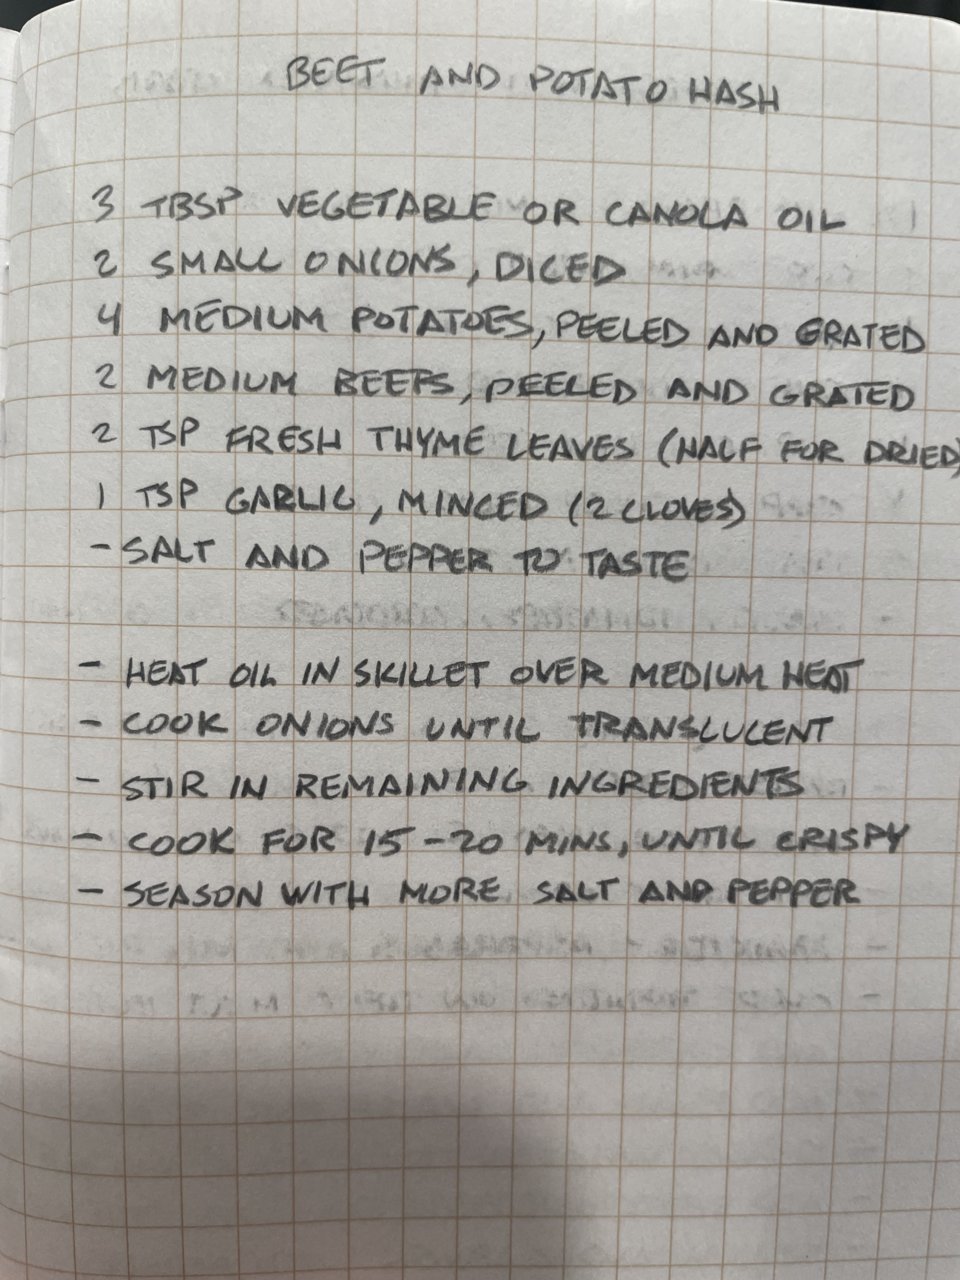 BEET AND POTATO HASH
3 TBSP VEGETABLE OR CANOLA OIL
2 SMALL ONIONS, DICED
4 MEDIUM POTATOES, PEELED AND GRATED
2 MEDIUM BEETS, PEELED AND GRATED
2 TSP FRESH THYME LEAVES (HALF FOR DRIED)
1 TSP GARLIC, MINCED (2 CLOVES)
- SALT AND PEPPER TO TASTE
- HEAT OIL IN SKILLET OVER MEDIUM HEAT
- COOK ONIONS UNTIL TRANSLUCENT
- STIR IN REMAINING INGREDIENTS
- COOK FOR 15-20 MINS, UNTIL CRISPY
- SEASON WITH MORE SALT AND PEPPER